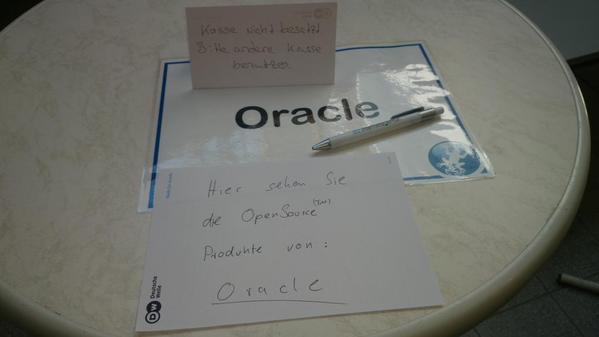 Kasse nicht besetzt
Bitte andere Kasse
benutzen
Oracle
Hier sehen Sie
die OpenSource (TM)
Produkte von:
Oracle
DW Deutsche
Welle